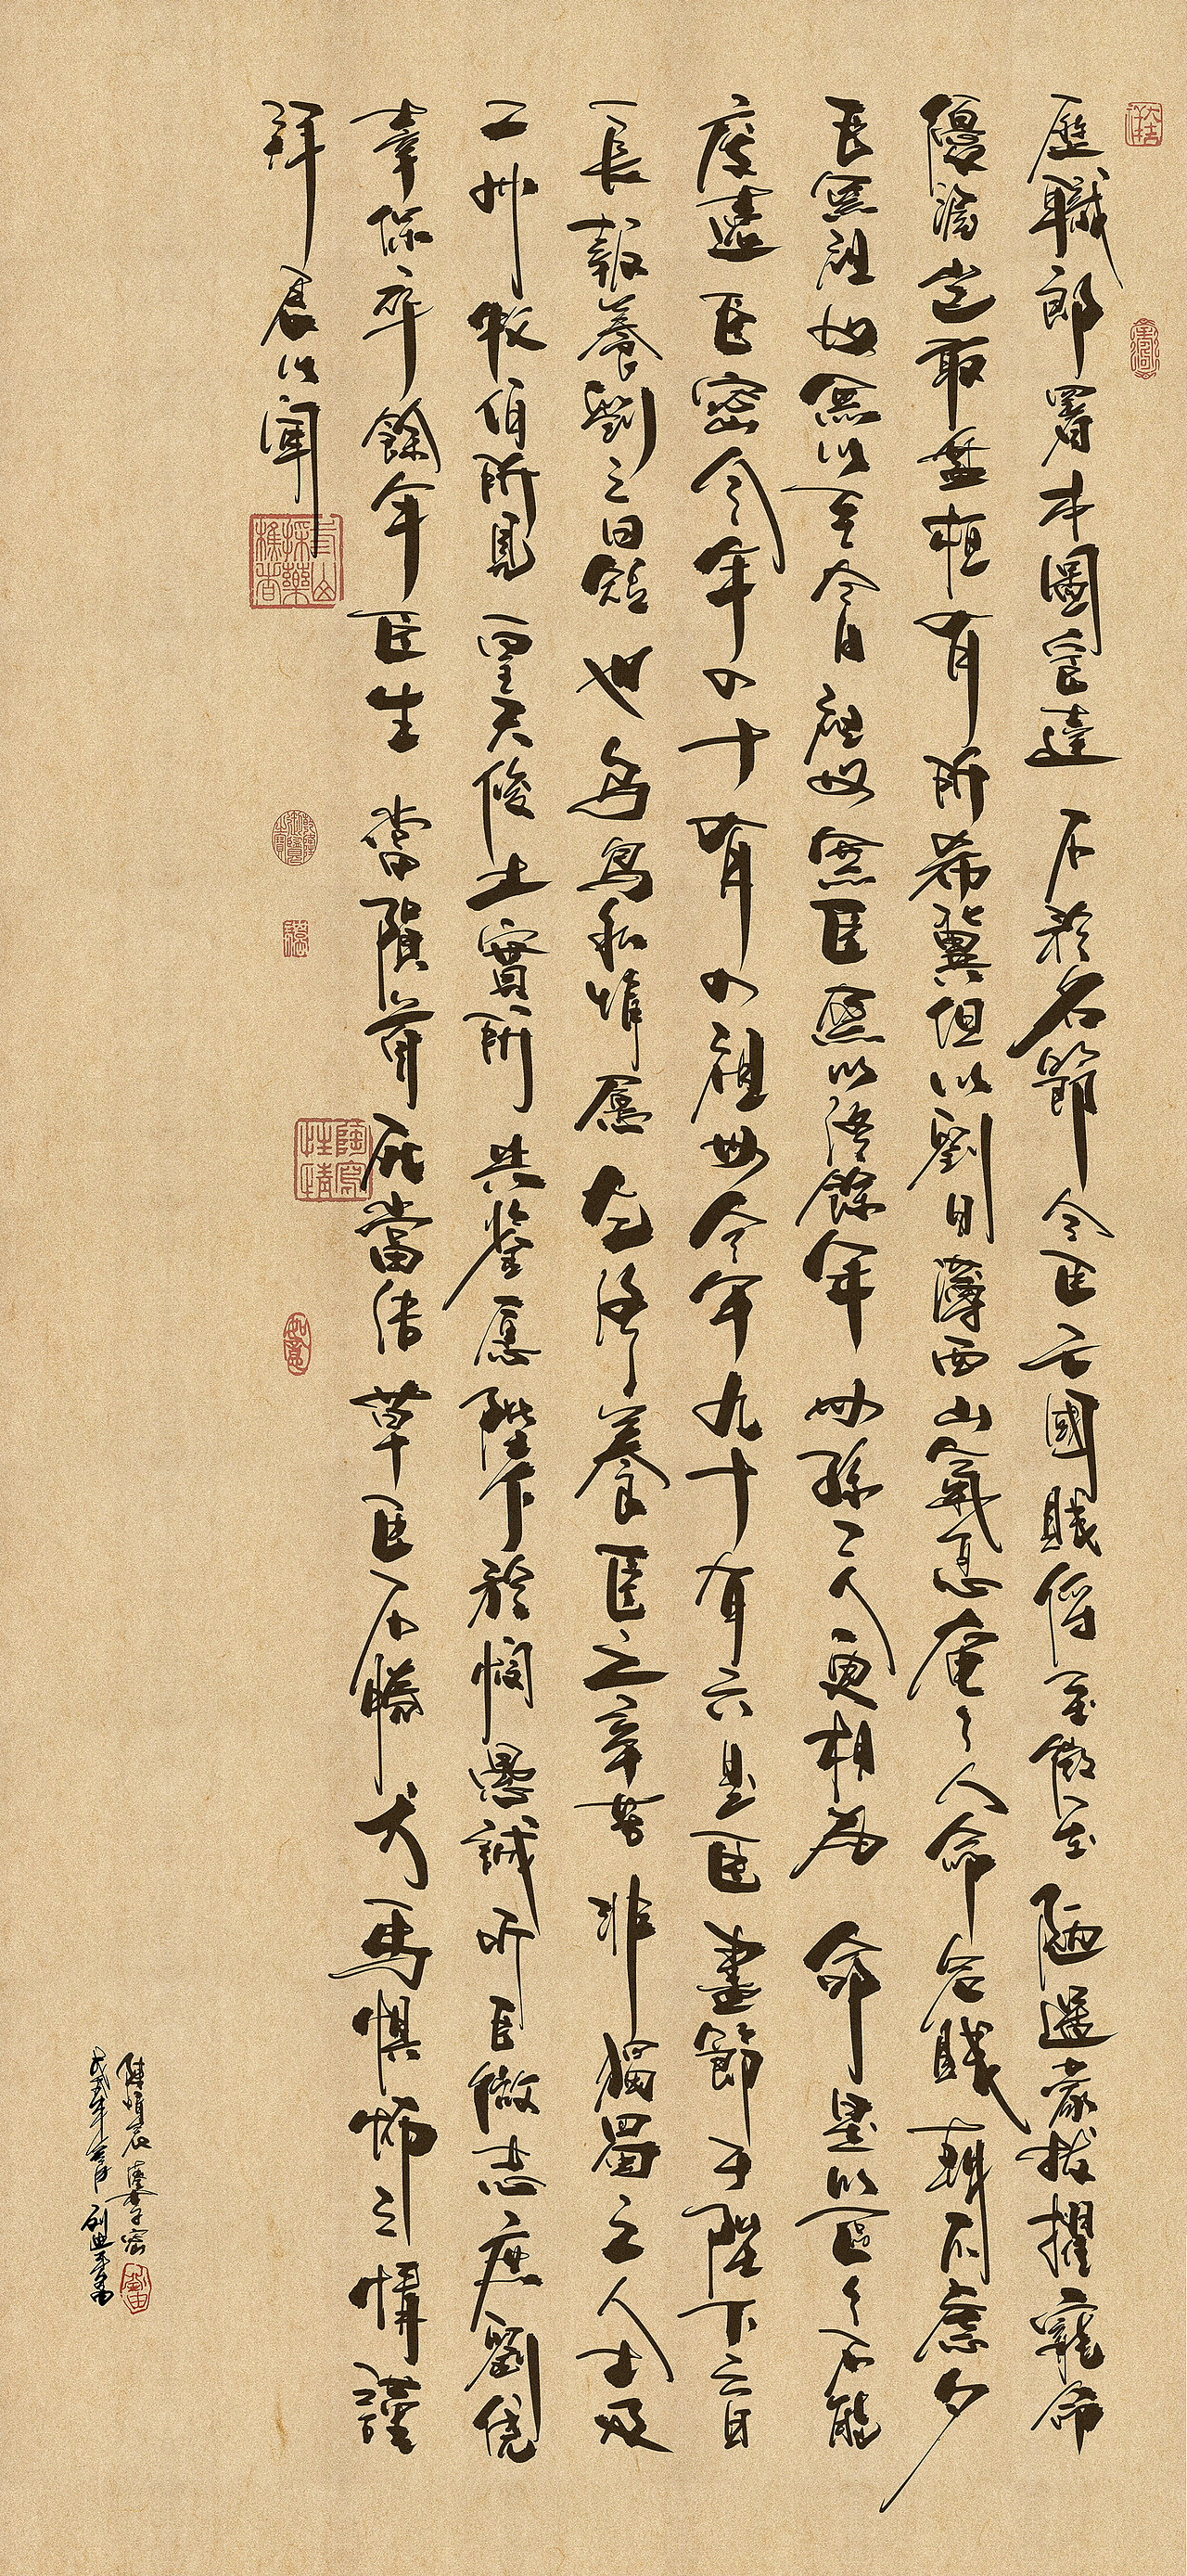 歷職郎署本圖宦達不矜名節今臣亡國賤俘至微至陋過蒙拔擢寵命
優渥豈敢盤桓有所希冀但以劉日薄西山氣息奄々人命危賤朝不慮夕
臣無祖母無以至今日祖母無臣無以終餘年母孫二人更相為命是以區々不能
廢遠臣密今年四十有四祖母今年九十有六是臣盡節于陛下之日
長報養劉之日短也烏鳥私情願乞終養臣之辛苦非獨蜀之人士及
二州牧伯所見皇天後土實所共鑒願陛下矜憫愚誠听臣微志庶劉僥
幸保卒餘年臣生當隕首死當結草臣不勝犬馬懼怖之情謹
拜表以聞
陳情表 李密
戊戌年
陶寫性情
如意